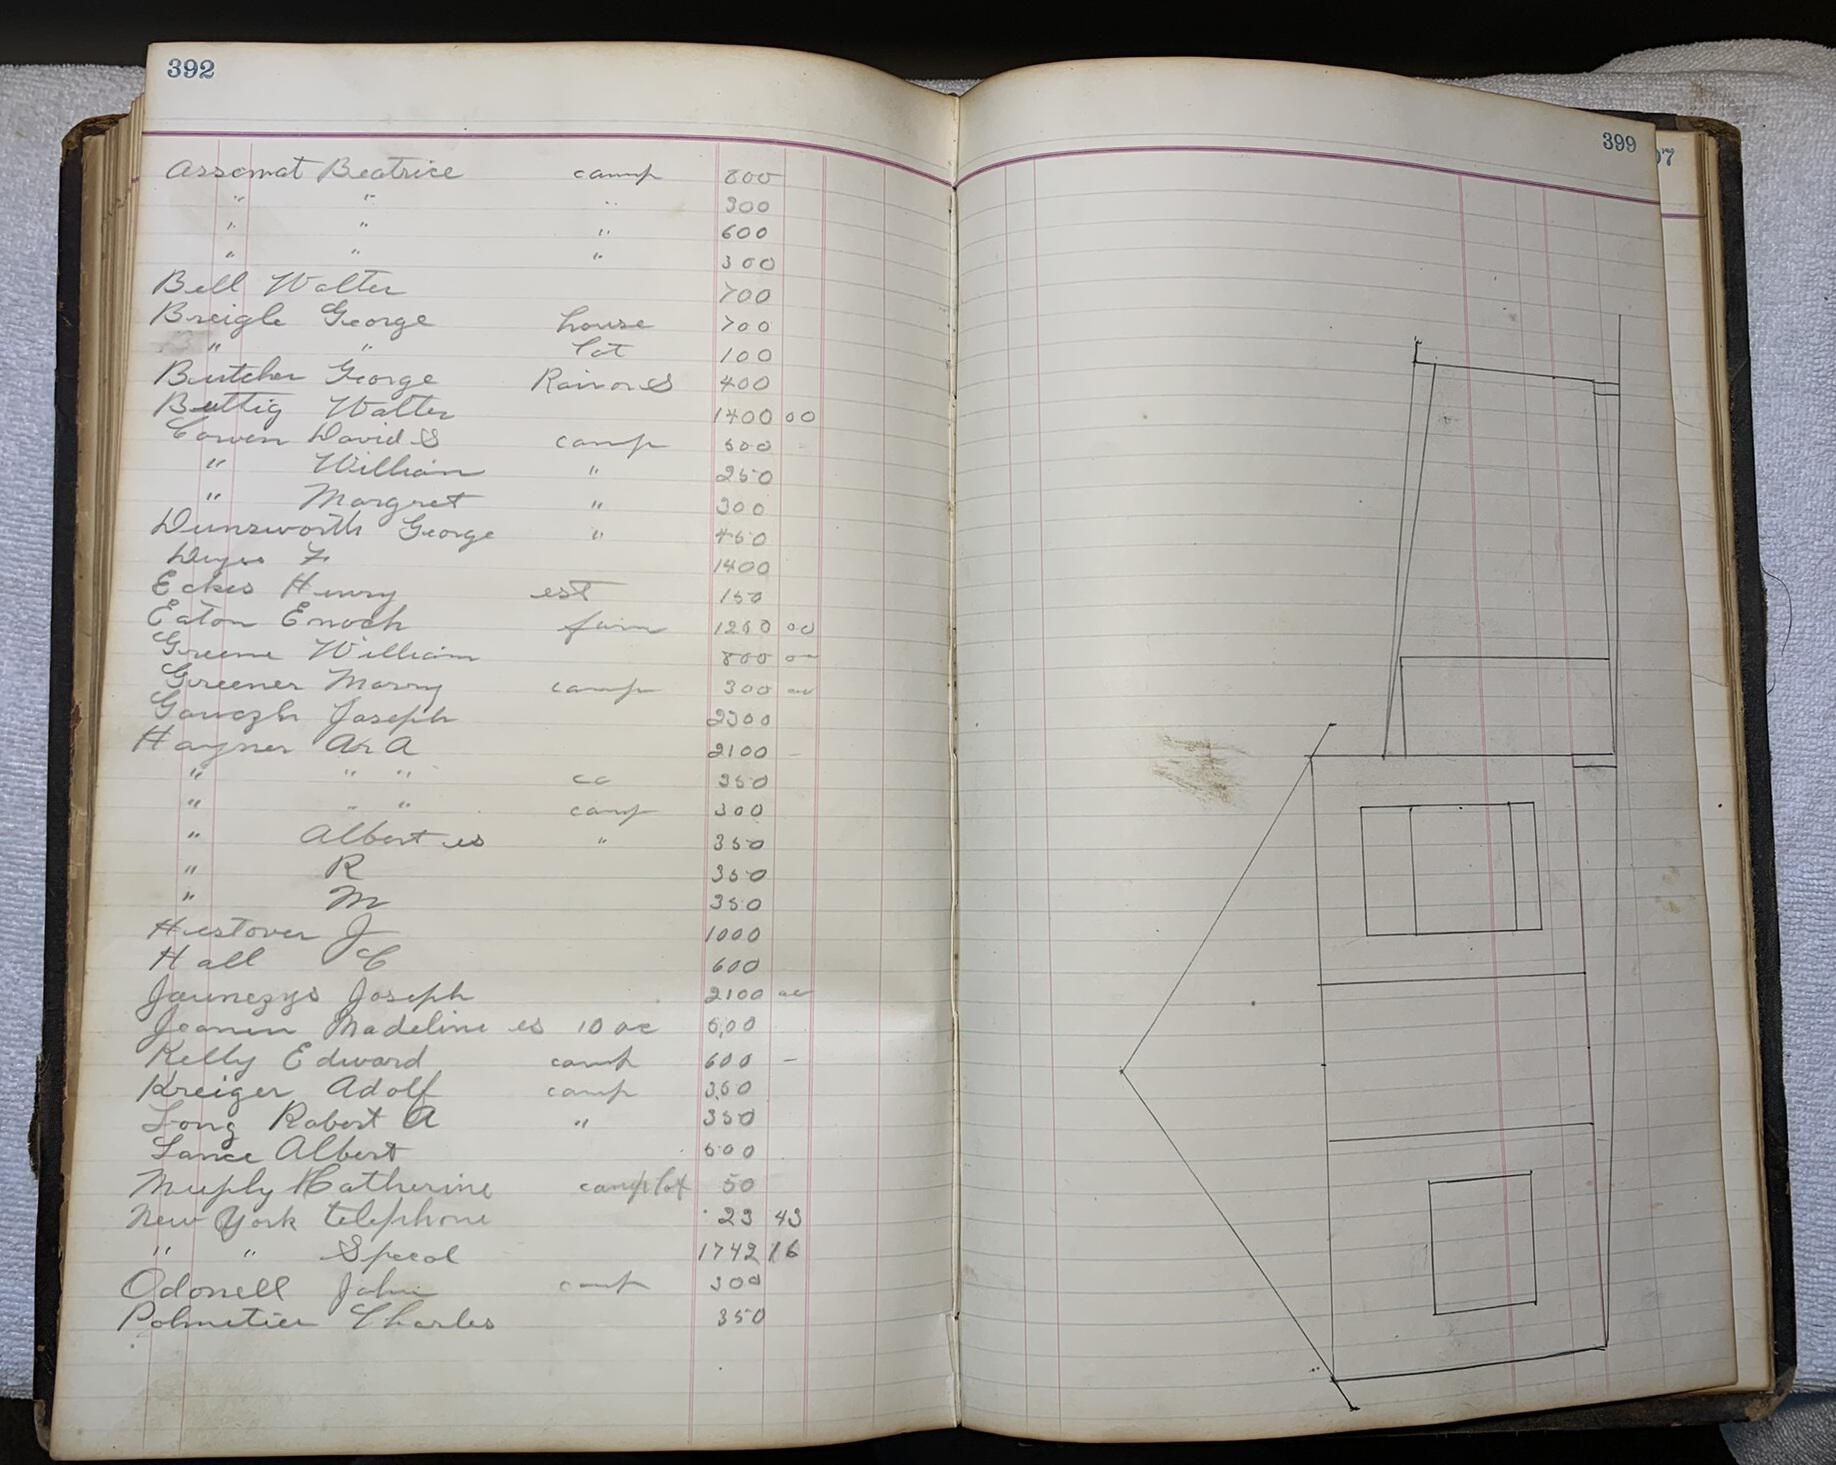 392
Assomat Beatrice camp 800
" " " 300
" " " 600
" " " 300
Bell Walter 700
Breigle George house 700
" " lot 100
Butcher George 400
Buttig Walter 1400 00
Cowen David S camp 500
" William " 250
" Margret " 300
Dunsworth George " 450
1400
Eckes Henry est 150
Eaton Enoch farm 1250 00
Greene William 800 00
Greener Marry camp 300
Joseph 2300
Hayner Ar A 2100 -
" " " 350
" " " camp 300
" Albert es " 350
" R 350
" M 350
Hestover J 1000
Hall C 600
Joseph 2100
Jeanen Madeline es 10 ac 600
Kelly Edward camp 600 -
Kreiger Adolf camp 350
Long Robert A " 350
Lance Albert 500
Katherine camp lot 50
New York telephone 23 43
" " Specal 1742 16
Odonell John camp 300
Polmetier Charles 350
399
97